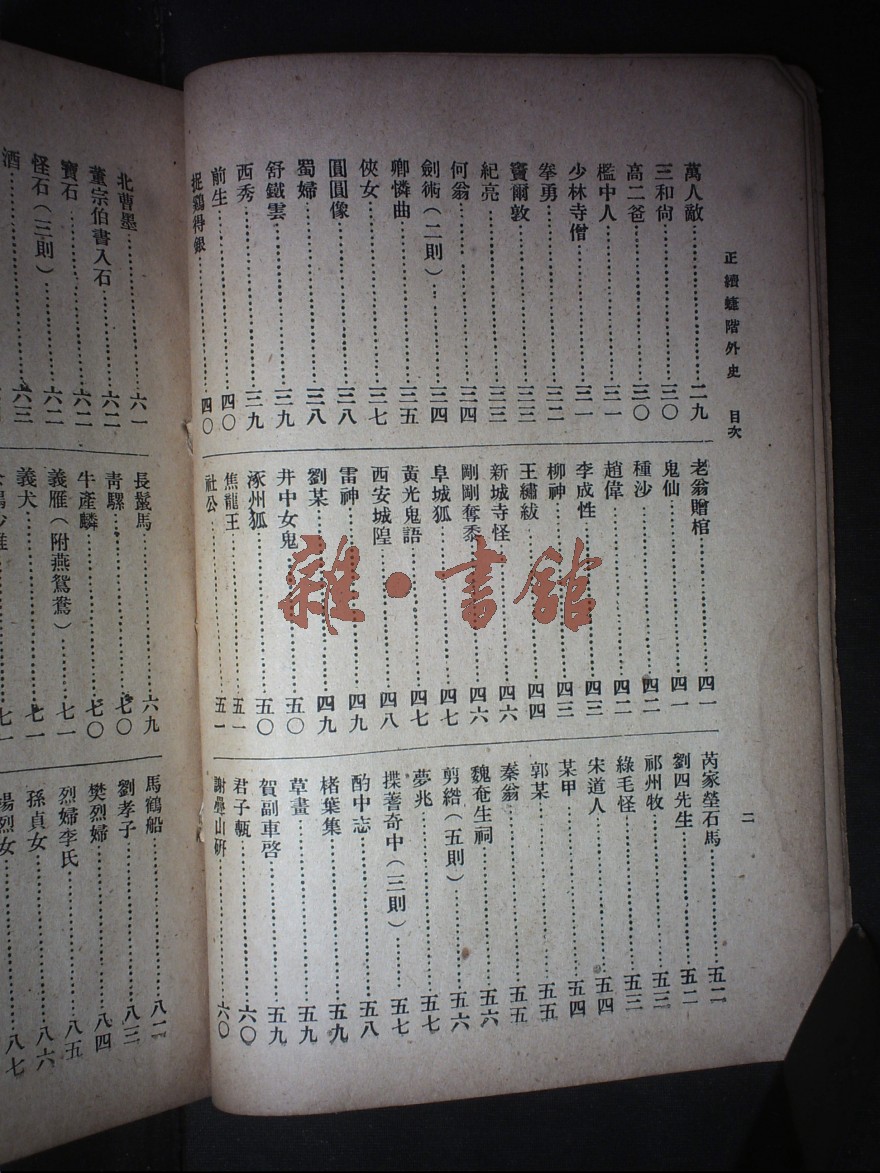 正續蜨階外史 目次
二
萬人敵……二九
三和尙……三〇
高二爸……三〇
檻中人……三一
少林寺僧……三一
拳勇……三二
竇爾敦……三三
紀亮……三三
何翁……三四
劍術(二則)……三四
卿憐曲……三五
俠女……三七
圓圓像……三八
蜀婦……三八
舒鐵雲……三九
西秀……三九
前生……四〇
捉鷄得銀……四〇
老翁贈棺……四一
鬼仙……四一
種沙……四二
趙偉……四二
李成性……四三
柳神……四三
王繡紱……四四
新城寺怪……四六
剛剛奪黍……四六
阜城狐……四七
黃光鬼語……四七
西安城隍……四八
雷神……四九
劉某……四九
井中女鬼……五〇
涿州狐……五〇
焦龍王……五一
社公……五一
芮家塋石馬……五二
劉四先生……五二
祁州牧……五三
綠毛怪……五三
宋道人……五四
某甲……五四
郭某……五五
秦翁……五五
魏奄生祠……五六
剪綹(五則)……五六
夢兆……五七
揲蓍奇中(三則)……五七
酌中志……五八
楮葉集……五九
草畫……五九
賀副車啓……五九
君子甎……六〇
謝疊山硏……六〇
北曹墨……六一
董宗伯書入石……六二
寶石……六二
怪石(三則)……六二
酒……六三
長鬣馬……六九
靑騾……七〇
牛產麟……七〇
義雁(附燕鴛鴦)……七一
義犬……七一
馬鶴船……八二
劉孝子……八三
樊烈婦……八四
烈婦李氏……八五
孫貞女……八六
楊烈女……八七
雜·書館